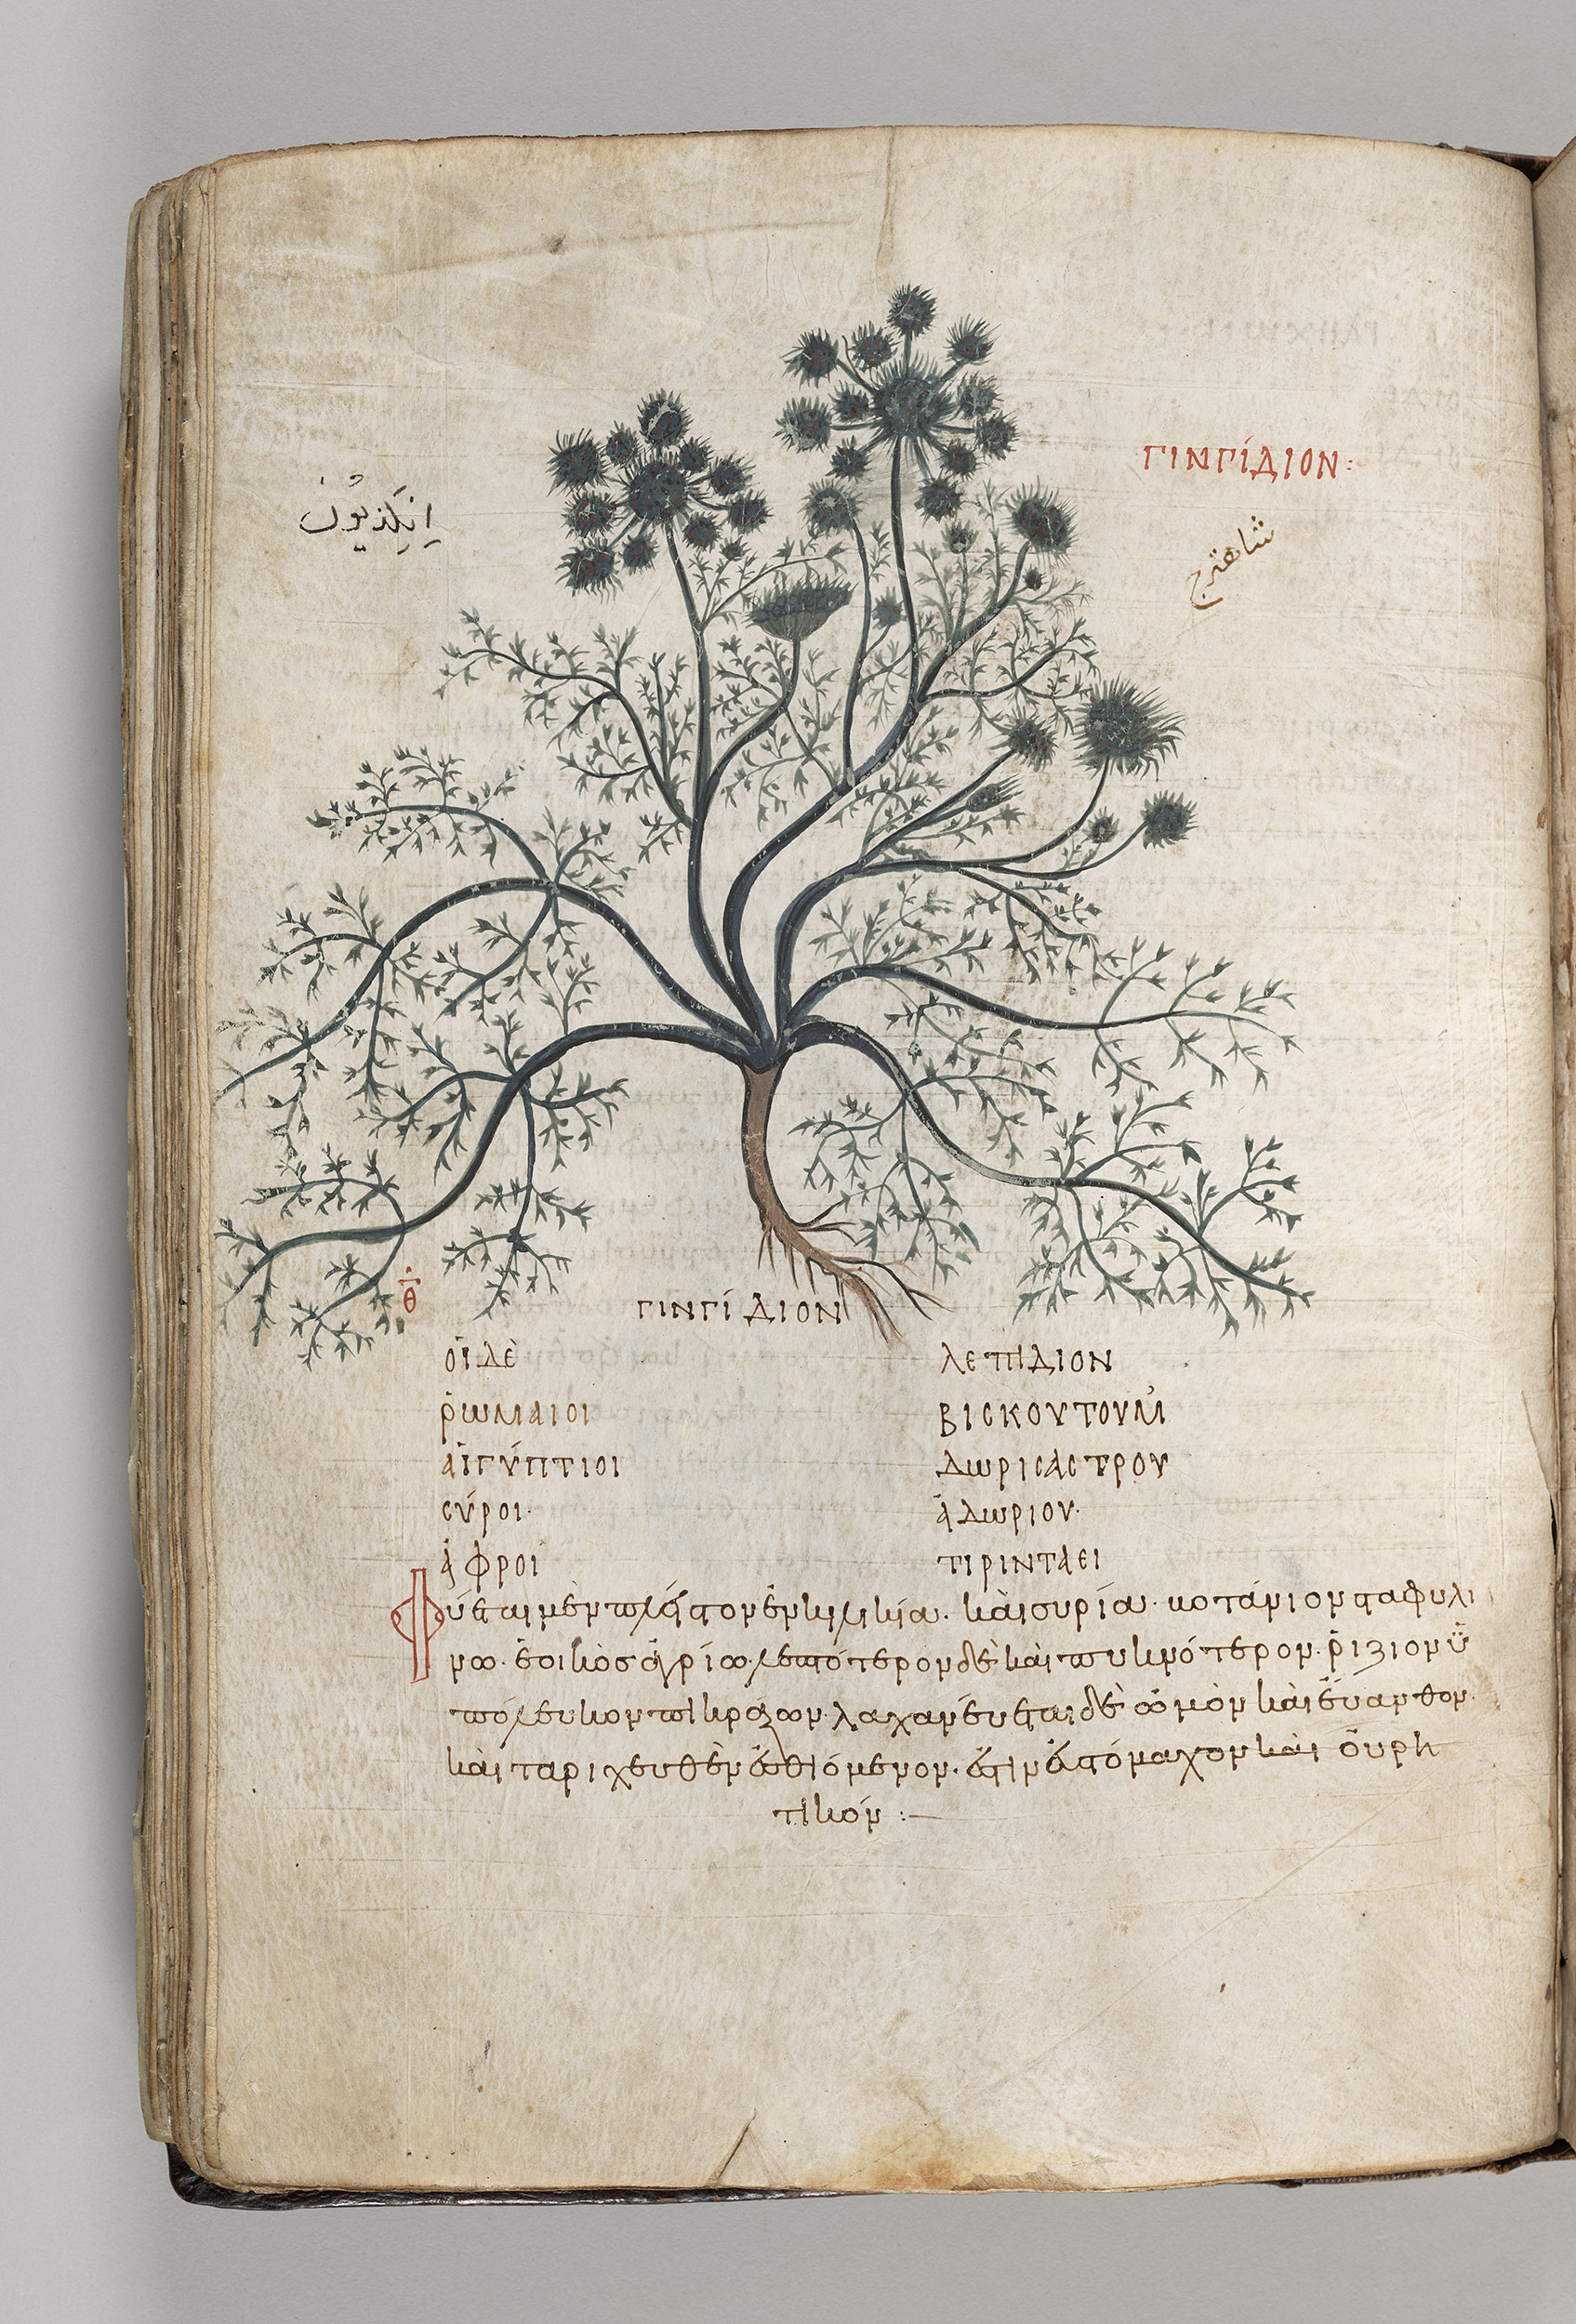 ΓΙΝΓΊΔΙΟΝ:
انكذيون
شاهترج
θ
ΓΙΝΓΊΔΙΟΝ
ΟἹ ΔῈ ΛΕΠΊΔΙΟΝ
ῬΩΜΑΙΟΙ ΒΙϹΚΟΥΤΟΥΜ
ΑἸΓΎΠΤΙΟΙ ΔΩΡΙϹΑϹΤΡΟΥ
ϹΎΡΟΙ· ἈΔΩΡΙΟΥ·
ἌΦΡΟΙ ΤΙΡΙΝΤΑΕΙ
Φύεται μὲν πλεῖστον ἐν κιλικία· καὶ συρία· βοτάνιον σταφυλί
νω· ἐοικὸς ἀγρίω· λεπτότερον δὲ καὶ πυκνότερον· ῥιζίον ὑ
πόλευκον πικράζων· λαχανέυεται δὲ ὠμὸν καὶ ἑ
καὶ ταριχευθὲν ἐσθιόμενον· ἐστὶν εὐστόμαχον καὶ οὐρη
τικόν :—